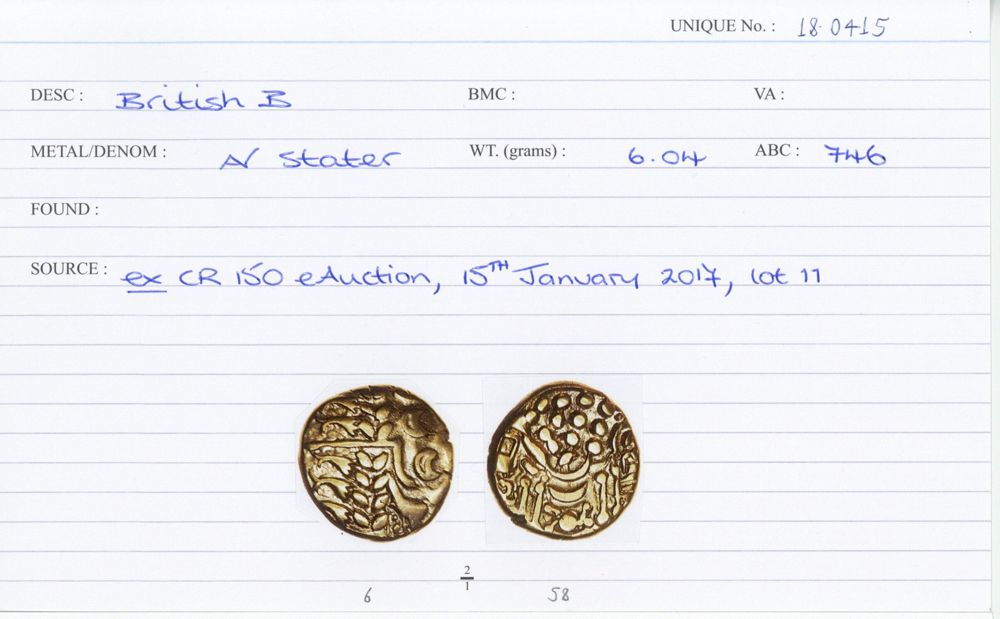 UNIQUE No. : 18.0415
DESC : British B BMC : VA :
METAL/DENOM : AV Stater WT. (grams) : 6.04 ABC : 746
FOUND :
SOURCE : ex CR 150 eAuction, 15TH January 2017, lot 11
2
1
6 58